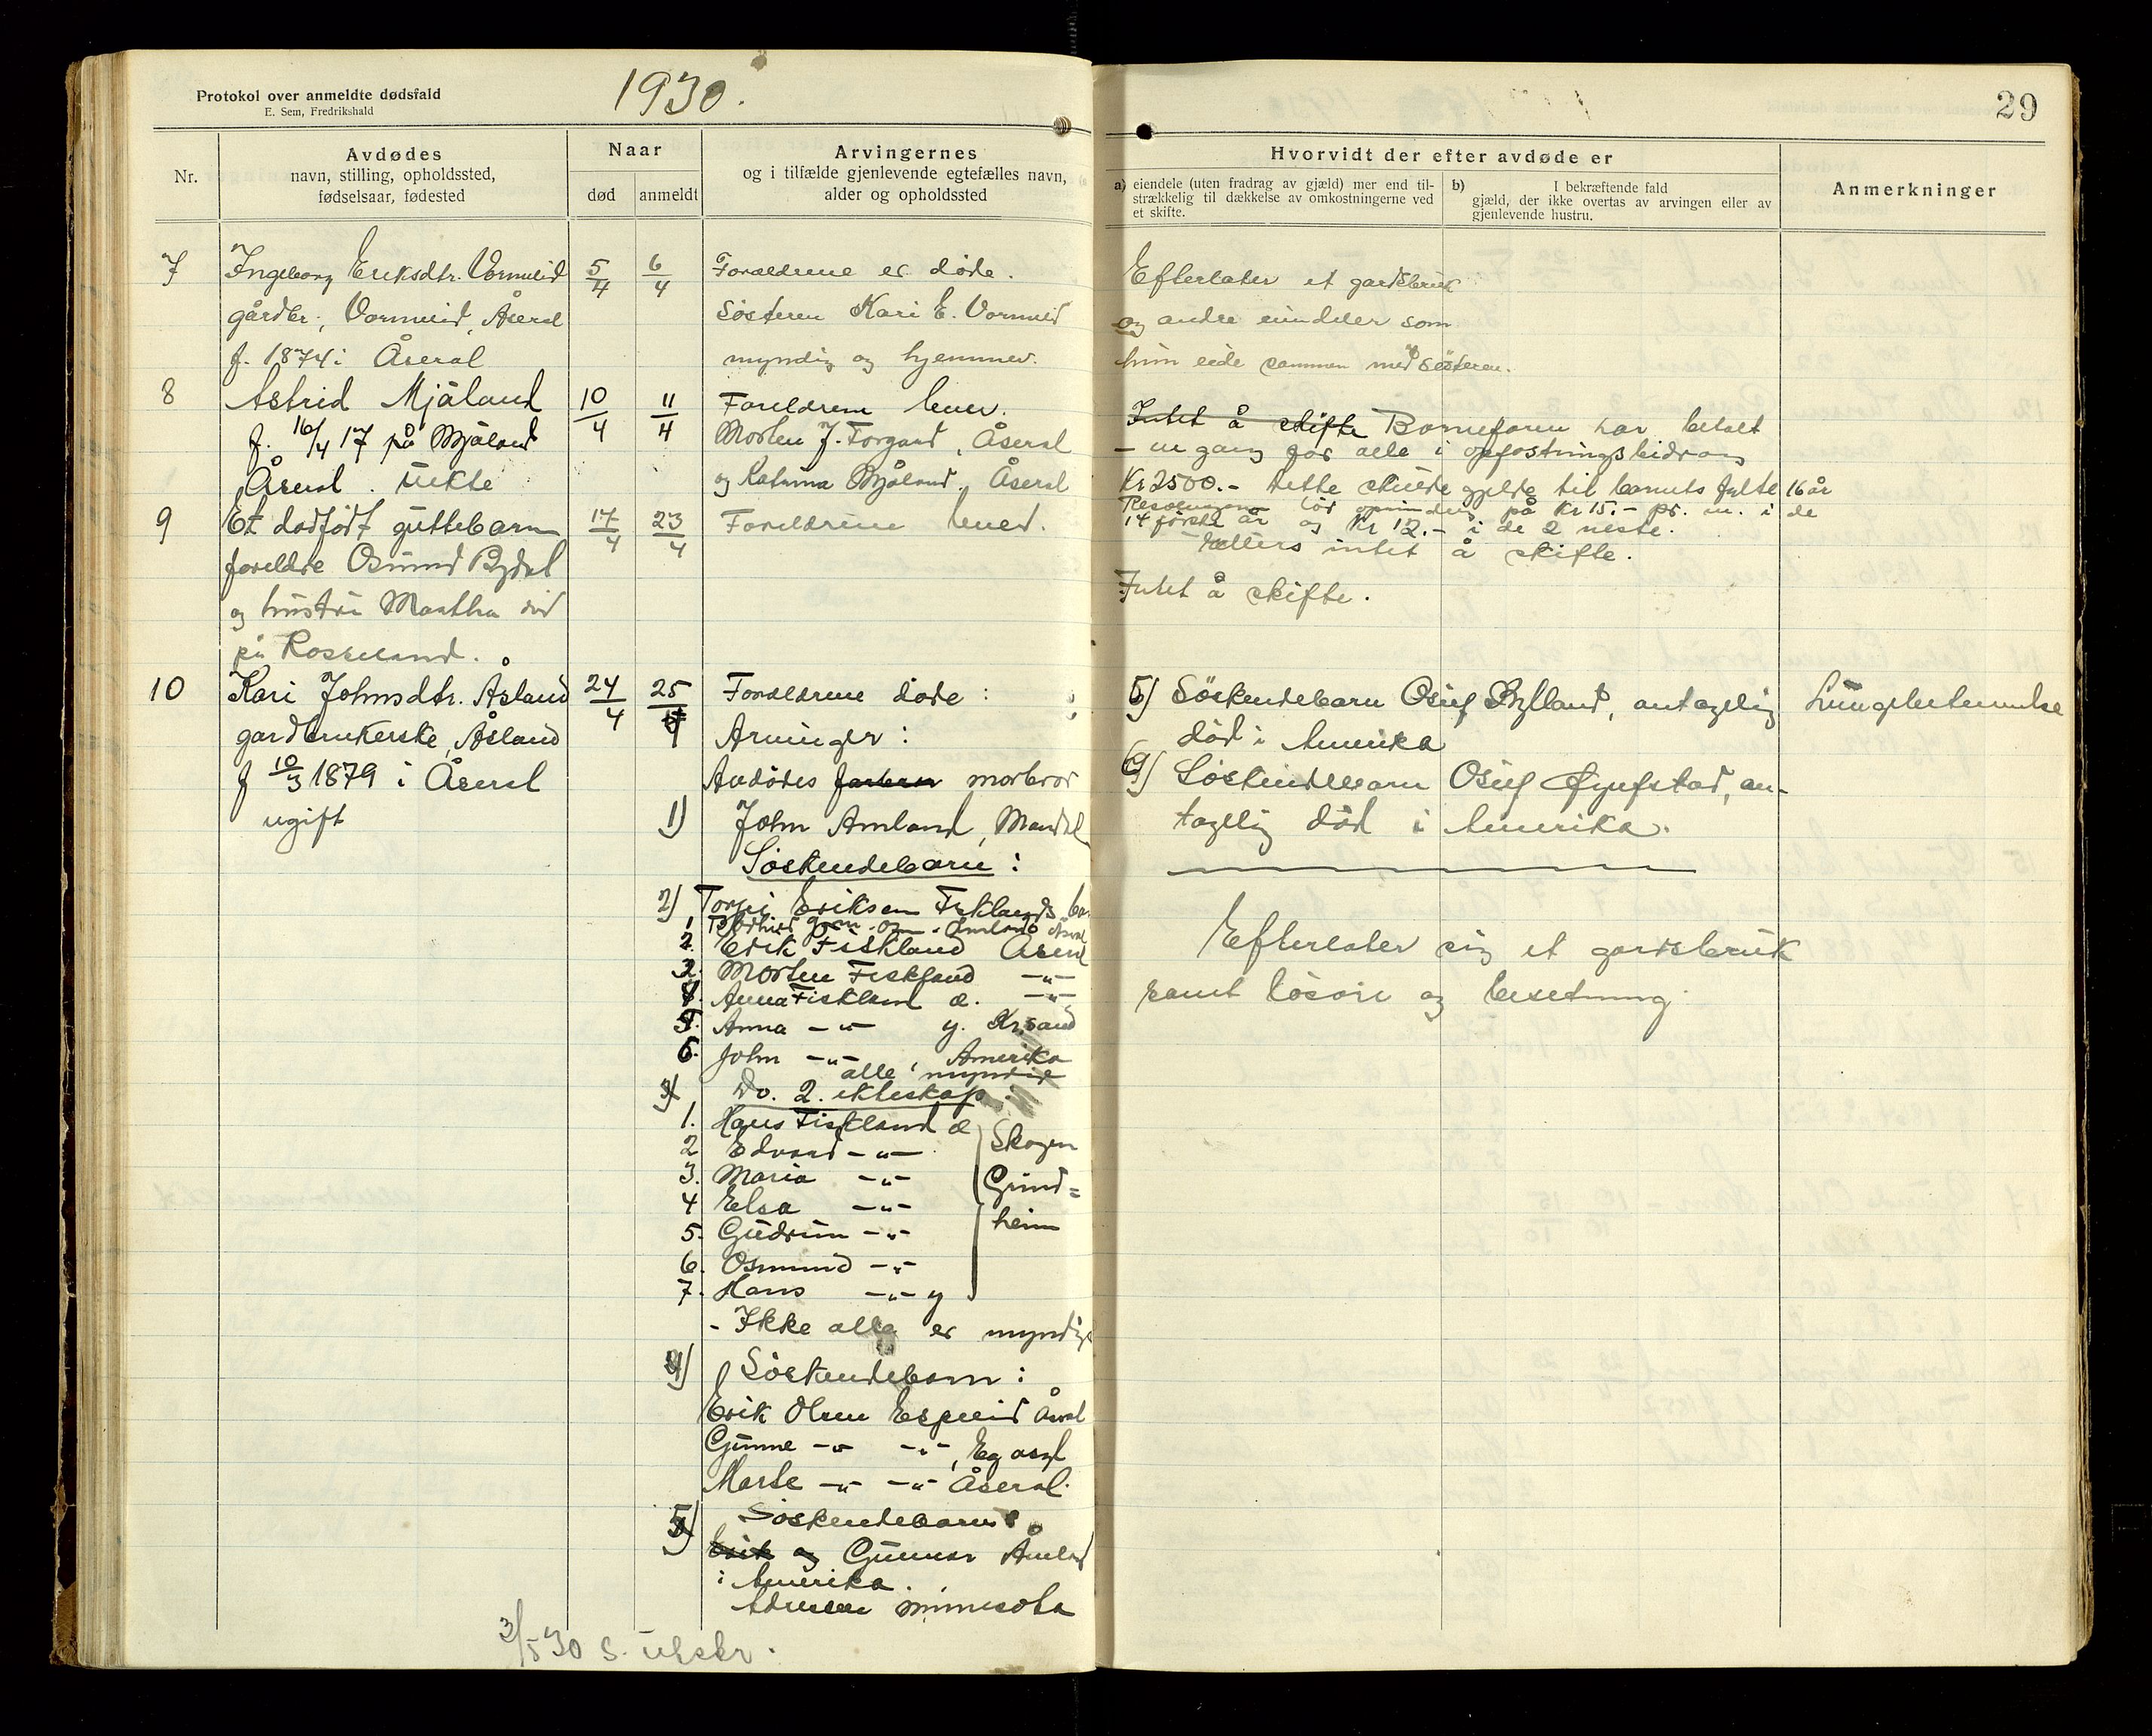 Protokol over anmeldte dødsfald
E. Sem, Fredrikshald
1930.
Nr.
Avdødes
navn, stilling, opholdssted,
fødselsaar, fødested
Naar
død
anmeldt
Arvingernes
og i tilfælde gjenlevende egtefælles navn,
alder og opholdssted
7
Ingeborg Eriksdtr. Vormeid
gårdbr., Vormeid, Åseral
f. 1874 i Åseral
5/4
6/4
Forældrene er døde.
Søsteren Kari E. Vormeid
myndig og hjemmev.
8
Astrid Mjåland
f. 16/4 17 på Mjåland
Åseral. uekte
10/4
11/4
Foreldrene lever.
Morten J. Forgard, Åseral
og Katrina Mjåland, Åseral
9
Et dødfødt guttebarn
foreldre Osmund Bydal
og hustru Martha
på Rosseland.
17/4
23/4
Foreldrene lever.
10
Kari Johnsdtr. Åsland
gardbrukerske Åsland
f 10/3 1879 i Åseral
ugift
24/4
25/4
Forældrene døde:
Arvinger:
Avdødes farbror morbror
1) John Amland, Mandal
Søskendebarn:
2) Torjei Eriksen Fisklands
2. Erik Fiskland Åseral
3. Morten Fiskland -"-
4. Anna Fiskland æ. -"-
5. Anna -"- y. Kr.sand
6. John -"- Amerika
alle myndig
3) Do. 2. ekteskap
1. Hans Fiskland æ
2 Edvard -"-
3. Maria -"-
4 Elsa -"-
5. Gudrun -"-
6. Osmund -"-
7. Hans -"- y
Skogen
Grind=
heim
- Ikke alle er myndige
4) Søskendebarn:
Erik Olsen Espeeid Åseral
Gunne -"- -"-, Eg
Marte -"- -"- Åseral.
5) Søskendebarn:
Erik og Gunnar Åmland
i Amerika.
Adressen Minnesota
3/5 30 S. utskr.
29
Hvorvidt der efter avdøde er
a) eiendele (uten fradrag av gjæld) mer end til-
strækkelig til dækkelse av omkostningerne ved
et skifte.
b) I bekræftende fald
gjæld, der ikke overtas av arvingen eller av
gjenlevende hustru.
Anmerkninger
Efterlater et gardsbruk
og andre eiendeler som
hun eide sammen med søsteren.
Intet å skifte Barnefaren har betalt
- en gang for alle i opfostringsbidrag
Kr 2500.- dette skulde gjelde til barnets fylte 16 år
på Kr 15.- pr. m. i de
14 første år og Kr 12.- i de 2 neste.
Ellers intet å skifte.
Intet å skifte.
5) Søskendebarn Osuf Bylland, antagelig
død i Amerika
6) Søskendebarn Osuf Øyufstad, an-
tagelig død i Amerika.
Efterlater sig et gardsbruk
samt løsøre og besetning.
Lungebetennelse